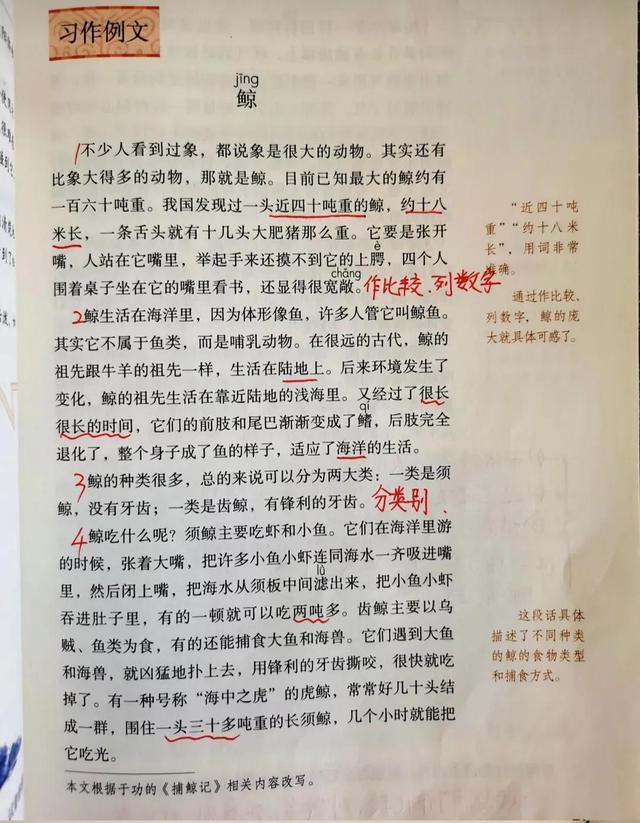 习作例文
jīng
鲸
1不少人看到过象，都说象是很大的动物。其实还有
比象大得多的动物，那就是鲸。目前已知最大的鲸约有
一百六十吨重。我国发现过一头近四十吨重的鲸，约十八
米长，一条舌头就有十几头大肥猪那么重。它要是张开
è
嘴，人站在它嘴里，举起手来还摸不到它的上腭，四个人
chǎng
围着桌子坐在它的嘴里看书，还显得很宽敞。作比较、列数字
2鲸生活在海洋里，因为体形像鱼，许多人管它叫鲸鱼。
其实它不属于鱼类，而是哺乳动物。在很远的古代，鲸的
祖先跟牛羊的祖先一样，生活在陆地上。后来环境发生了
变化，鲸的祖先生活在靠近陆地的浅海里。又经过了很长
qí
很长的时间，它们的前肢和尾巴渐渐变成了鳍，后肢完全
退化了，整个身子成了鱼的样子，适应了海洋的生活。
3鲸的种类很多，总的来说可以分为两大类：一类是须
鲸，没有牙齿；一类是齿鲸，有锋利的牙齿。分类别、
4鲸吃什么呢？须鲸主要吃虾和小鱼。它们在海洋里游
的时候，张着大嘴，把许多小鱼小虾连同海水一齐吸进嘴
lǜ
里，然后闭上嘴，把海水从须板中间滤出来，把小鱼小虾
吞进肚子里，有的一顿就可以吃两吨多。齿鲸主要以乌
贼、鱼类为食，有的还能捕食大鱼和海兽。它们遇到大鱼
和海兽，就凶猛地扑上去，用锋利的牙齿撕咬，很快就吃
掉了。有一种号称“海中之虎”的虎鲸，常常好几十头结
成一群，围住一头三十多吨重的长须鲸，几个小时就能把
它吃光。
本文根据于功的《捕鲸记》相关内容改写。
“近四十吨
重”“约十八米
长”，用词非常
准确。
通过作比较、
列数字，鲸的庞
大就具体可感了。
这段话具体
描述了不同种类
的鲸的食物类型
和捕食方式。